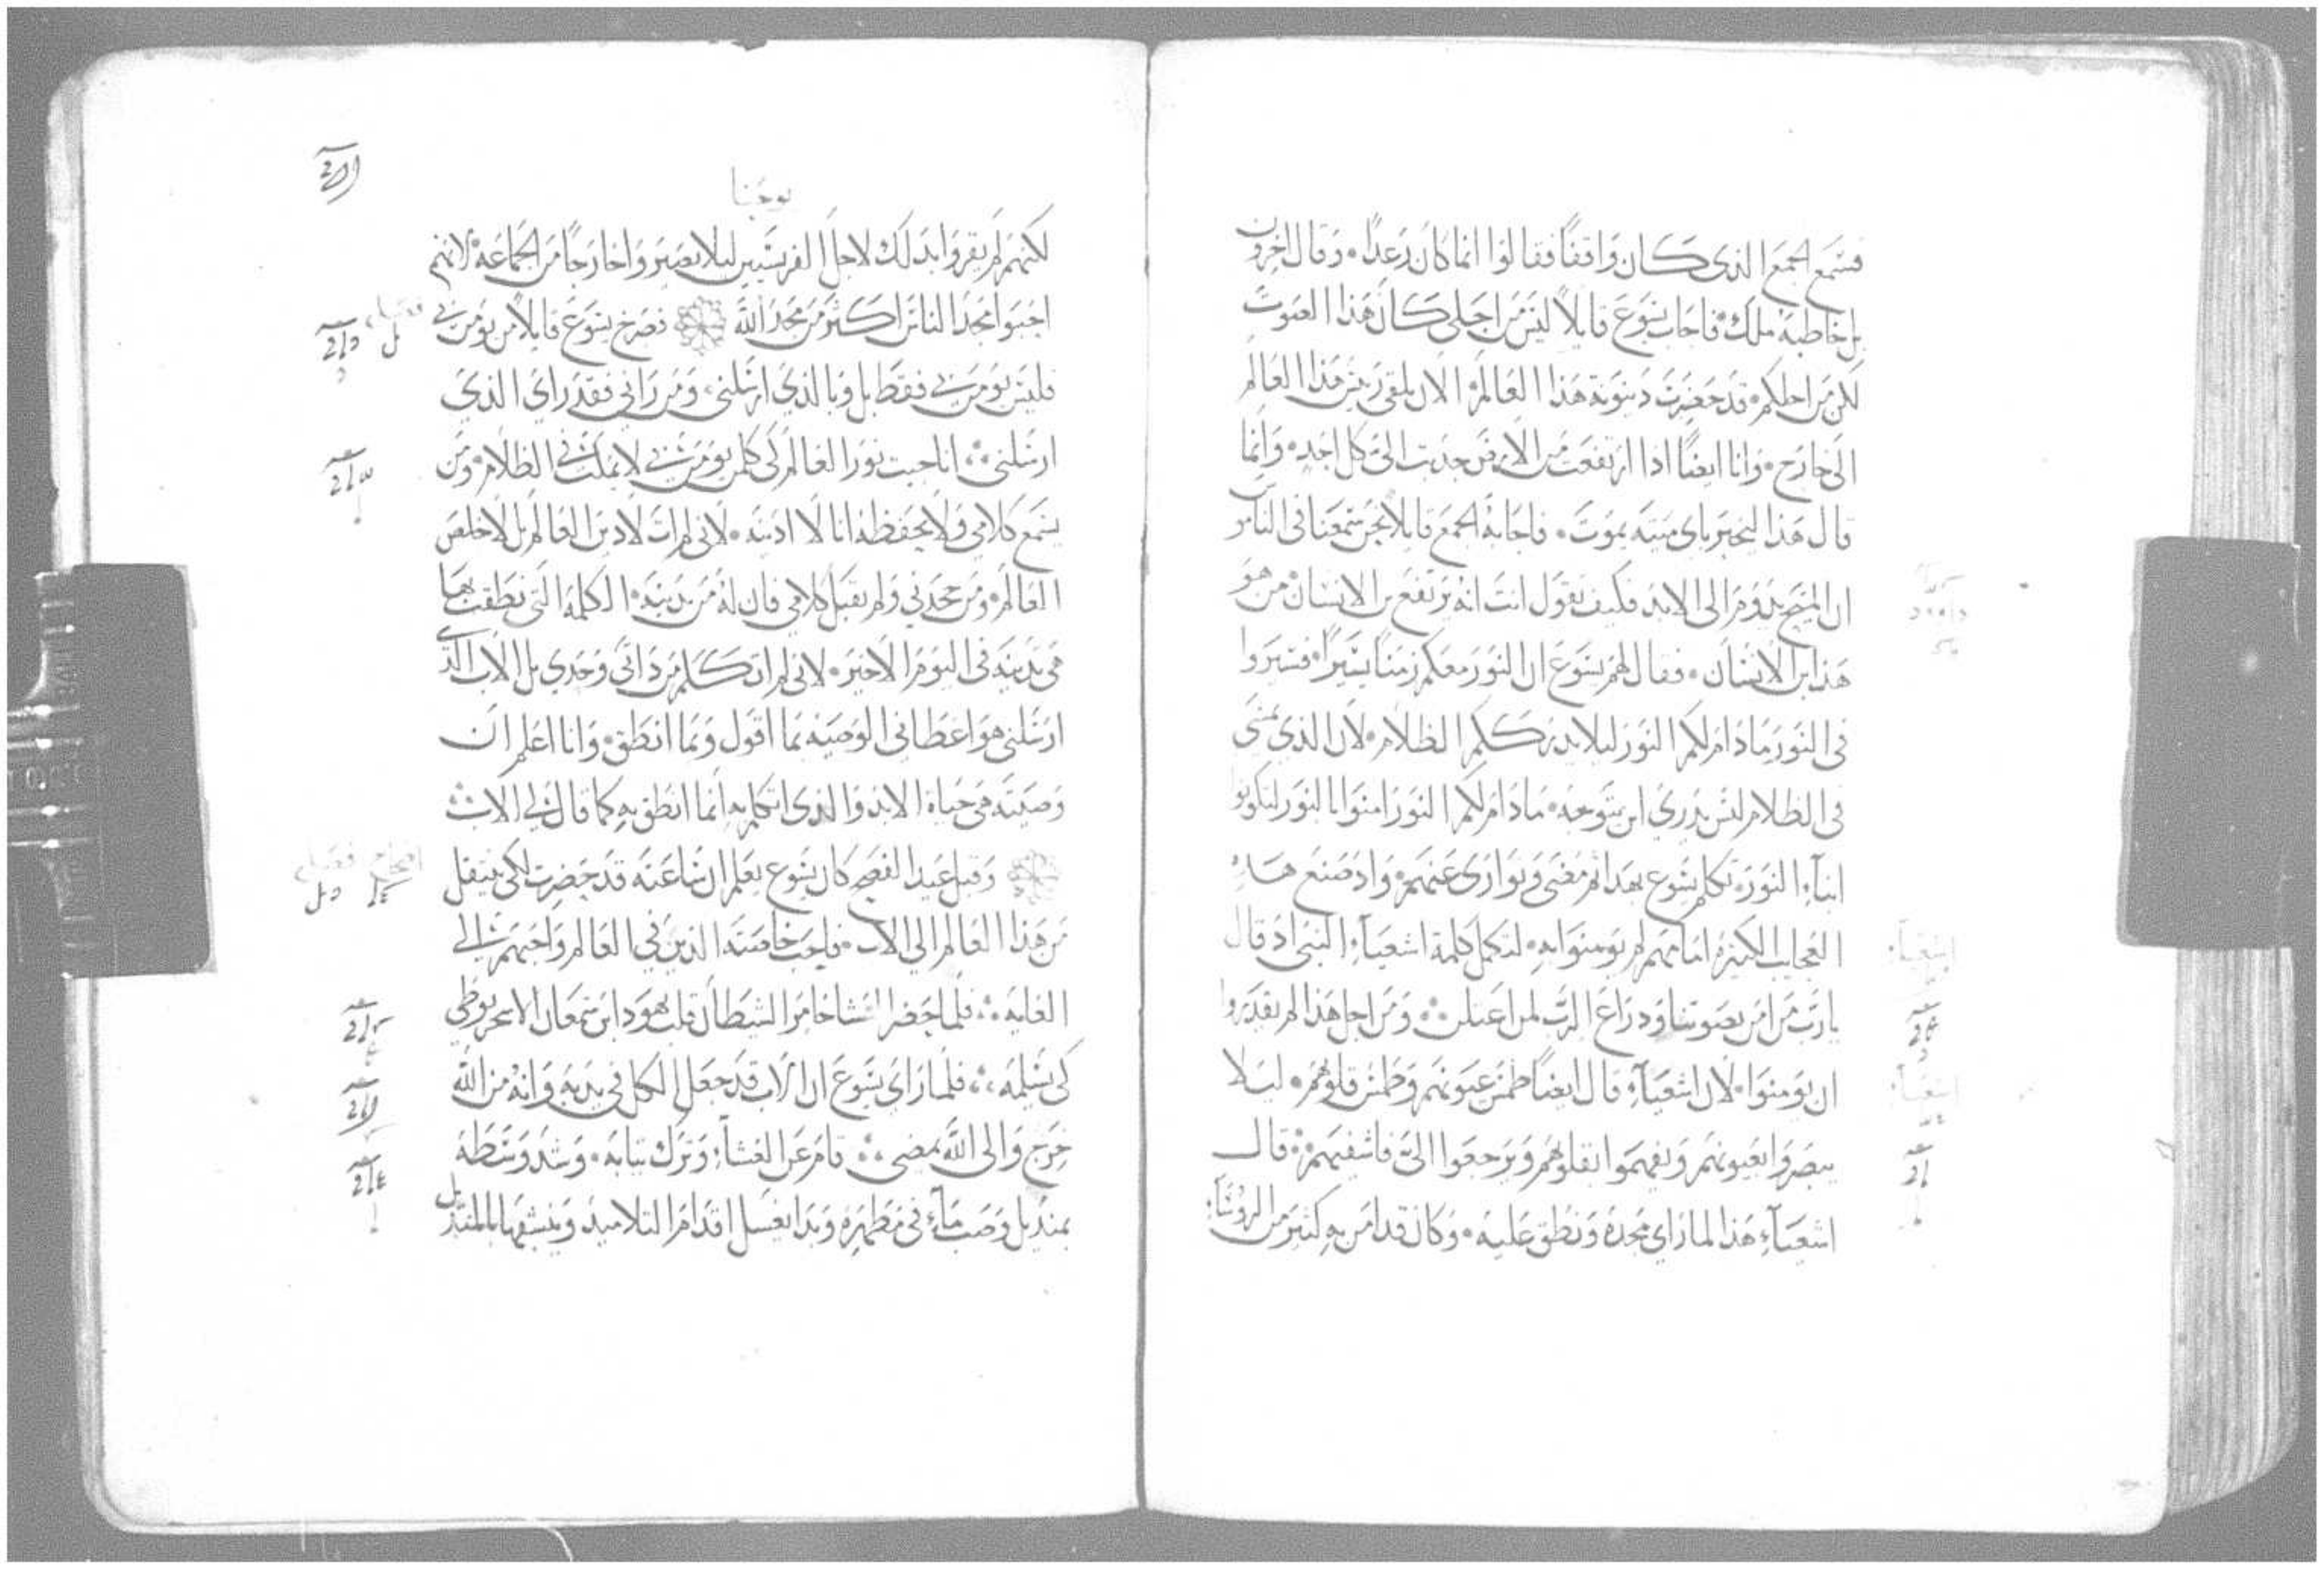 فسمع الجمع الذي كان واقفًا فقالوا انما كان رعدًا وقال اخرون
بل خاطبه ملك فاجاب يسوع قايلًا ليس من اجلي كان هذا الصوت
لكن من اجلكم قد حضرت دينونة هذا العالم الان يلقى رييس هذا العالم
الى خارج وانا ايضًا اذا ارتفعت من الارض جذبت الي كل احد وانما
قال هذا ليخبر باي ميته يموت فاجابه الجمع قايلا نحن سمعنا في الناموس
ان المسيح يدوم الى الابد فكيف تقول انت انه يرتفع ابن الانسان من هو
هذا ابن الانسان فقال لهم يسوع ان النور معكم زمنًا يسيرًا فسيروا
في النور ما دام لكم النور ليلا يدرككم الظلام لان الذي يمشي
في الظلام ليس يدري اين يتوجه ما دام لكم النور امنوا بالنور لتكونوا
ابناء النور تكلم يسوع بهذا ثم مضى وتوارى عنهم واذ صنع هذه
العجايب الكثيرة امامهم لم يومنوا به لتكمل كلمة اشعياء النبي اذ قال
يا رب من امن بصوتنا وذراع الرب لمن اعتلن ومن اجل هذا لم يقدروا
ان يومنوا لان اشعياء قال ايضًا طمس عيونهم وطمس قلوبهم ليلا
يبصروا بعيونهم ويفهموا بقلوبهم ويرجعوا الي فاشفيهم قال
اشعياء هذا لما راى مجده ونطق عليه وكان قد امن به كثير من الروساء
اشعياء
اشعياء
يوحنا
لكنهم لم يقروا بذلك لاجل الفريسيين ليلا يصيروا خارجًا من الجماعه لانهم
احبوا مجد الناس اكثر من مجد الله فصرخ يسوع قايلًا من يومن بي
فليس يومن بي فقط بل وبالذي ارسلني ومن راني فقد راى الذي
ارسلني انا جيت نور العالم لكي كل من يومن بي لا يمكث في الظلام ومن
يسمع كلامي ولا يحفظه انا لا ادينه لاني لم ات لادين العالم بل لاخلص
العالم ومن جحدني ولم يقبل كلامي فان له من يدينه الكلمة التي نطقت بها
هي تدينه في اليوم الاخير لاني لم اتكلم من ذاتي وحدي بل الاب الذي
ارسلني هو اعطاني الوصيه بما اقول وبما انطق وانا اعلم ان
وصيته هي حياة الابد والذي اتكلم به انما انطق به كما قال لي الاب
وقبل عيد الفصح كان يسوع يعلم ان ساعته قد حضرت لكي ينتقل
من هذا العالم الى الاب فاحب خاصته الذين في العالم واحبهم الى
الغايه فلما حضر العشا خامر الشيطان قلب يهودا بن سمعان الاسخريوطي
كي يسلمه فلما راى يسوع ان الاب قد جعل الكل في يديه وانه من الله
خرج والى الله يمضي قام عن العشاء وترك ثيابه وشد وسطه
بمنديل وصب ماء في مطهره وبدا يغسل اقدام التلاميذ وينشفها بالمنديل